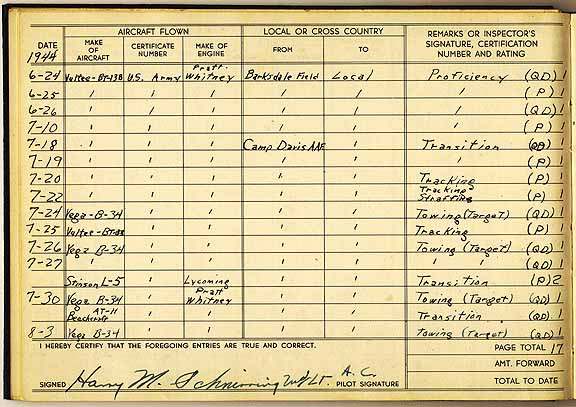 AIRCRAFT FLOWN LOCAL OR CROSS COUNTRY REMARKS OR INSPECTOR'S SIGNATURE, CERTIFICATION NUMBER AND RATING
DATE 1944 MAKE OF AIRCRAFT CERTIFICATE NUMBER MAKE OF ENGINE FROM TO
6-24 Vultee-BT-13B U.S. Army Pratt-Whitney Barksdale Field Local Proficiency (QD) 1
6-25 " " " " " " (P) 1
6-26 " " " " " " (QD) 1
7-10 " " " " " " (P) 1
7-18 " " " Camp Davis AAF " Transition (QD) 1
7-19 " " " " " " (P) 1
7-20 " " " " " Tracking (P) 1
7-22 " " " " " Tracking Strafing (P) 1
7-24 Vega-B-34 " " " " Towing (Target) (QD) 1
7-25 Vultee-BT-13B " " " " Tracking (P) 1
7-26 Vega B-34 " " " " Towing (Target) (QD) 1
7-27 " " " " " " " (QD) 1
Stinson L-5 " Lycoming " " Transition (P) 2
7-30 Vega B-34 " Pratt Whitney " " Towing (Target) (QD) 1
Beechcraft AT-11 " " " " Transition (QD) 1
8-3 Vega B-34 " " " " Towing (Target) (QD) 1
I HEREBY CERTIFY THAT THE FOREGOING ENTRIES ARE TRUE AND CORRECT.
PAGE TOTAL 17
AMT. FORWARD
SIGNED Harry M. 2nd Lt. A.C. PILOT SIGNATURE
TO DATE TOTAL